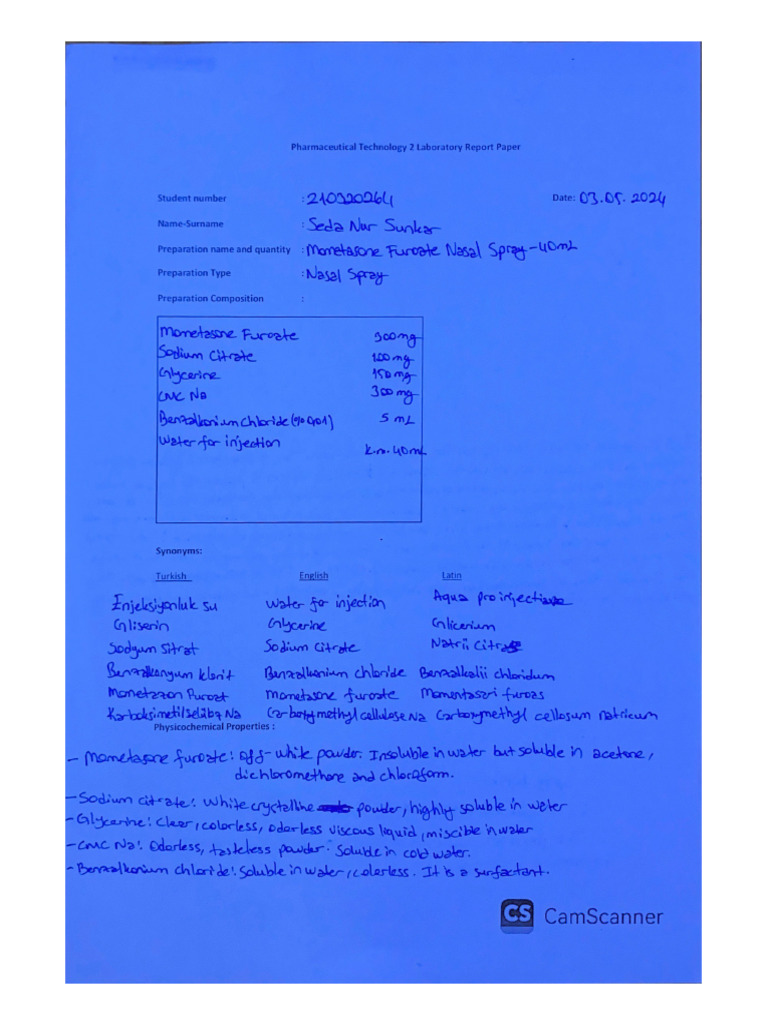 Pharmaceutical Technology 2 Laboratory Report Paper
Student number : 210320264 Date: 03.05.2024
Name-Surname : Seda Nur Sunkar
Preparation name and quantity : Mometasone Furoate Nasal Spray-40mL
Preparation Type : Nasal Spray
Preparation Composition :
Mometasone Furoate 300mg
Sodium Citrate 100 mg
Glycerine 150 mg
CMC Na 300 mg
Benzalkonium chloride (%0,01) 5 mL
Water for injection k.m. 40mL
Synonyms:
Turkish English Latin
Enjeksiyonluk su Water for injection Aqua pro injectione
Gliserin Glycerine Glicerium
Sodyum Sitrat Sodium Citrate Natrii Citras
Benzalkonyum klorit Benzalkonium chloride Benzalkolii chloridum
Mometazon Furoat Mometasone furoate Momentasori furoas
Karboksimetilselüloz Na Carboxymethyl cellulose Na Carboxymethyl cellosum natricum
Physicochemical Properties :
- Mometasone furoate: Off-white powder. Insoluble in water but soluble in acetone,
dichloromethane and chloroform.
- Sodium citrate: White crystalline powder, highly soluble in water
- Glycerine: Clear, colorless, odorless viscous liquid, miscible in water
- CMC Na: Odorless, tasteless powder. Soluble in cold water.
- Benzalkonium chloride: Soluble in water, colorless. It is a surfactant.
CS CamScanner